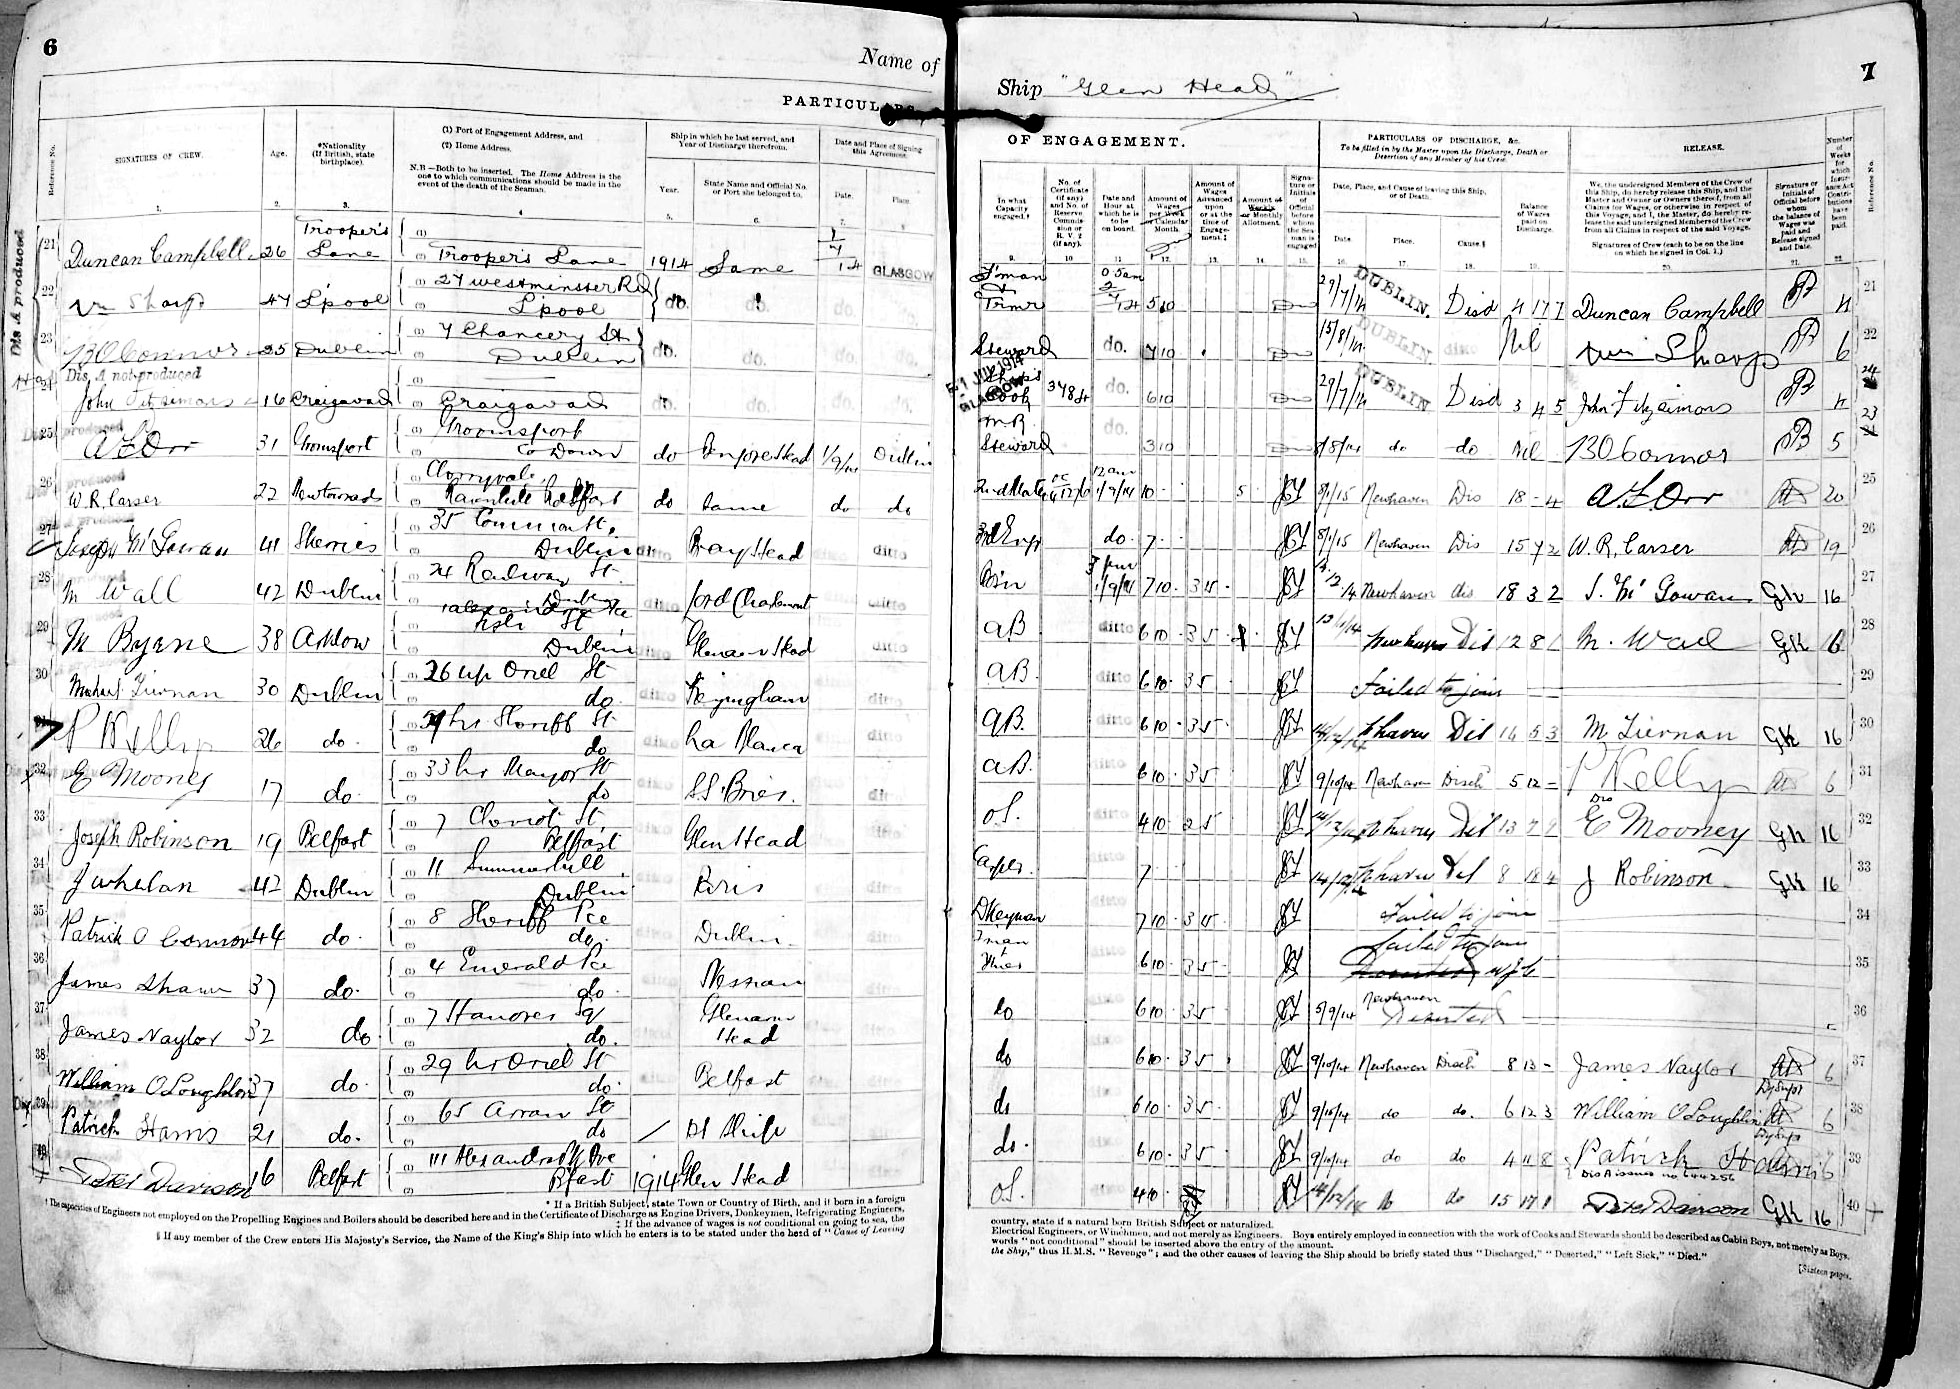 6
Name of
PARTICULARS
Reference No.
SIGNATURES OF CREW.
Age.
*Nationality
(If British, state
birthplace).
(1) Port of Engagement Address, and
(2) Home Address.
N.B.—Both to be inserted. The Home Address is the
one to which communications should be made in the
event of the death of the Seaman.
Ship in which he last served, and
Year of Discharge therefrom.
Year.
State Name and Official No.
or Port she belonged to.
Date and Place of Signing
this Agreement.
Date.
Place.
1. 2. 3. 4. 5. 6. 7. 8.
21 Duncan Campbell 26 Trooper's Lane Trooper's Lane 1914 Same 1/7/14 GLASGOW
22 Wm Sharp 47 L'pool 27 Westminster Rd L'pool do. do. do.
23 B O'Connor 25 Dublin 7 Chancery St Dublin do. do. do.
Dis. A not produced
24 John Fitzsimons 16 Craigavad Craigavad do. do.
25 A E Orr 31 Groomsport Groomsport Co Down do Head 1/9/14 Dublin
26 W. R. Carser 22 Newtownards Belfast do Same do do
27 Joseph McGowan 41 Skerries 35 Common St, Dublin ditto Bray Head ditto
28 M Wall 42 Dublin 24 Railway St. Dublin ditto Lord Charlemont ditto
29 M Byrne 38 Arklow St Dublin ditto Head ditto
30 Michael Tiernan 30 Dublin 26 up Oriel St do. ditto ditto
31 P Kelly 26 do. Sheriff St do ditto La Blanca ditto
32 E Mooney 17 do. 33 Mayor St do ditto
33 Joseph Robinson 19 Belfast 7 St Belfast ditto Glen Head ditto
34 J Whelan 42 Dublin 11 Summerhill, Dublin ditto ditto
35 Patrick O Connor 44 do. 8 Sheriff Pce do. Dublin
36 James Shaw 37 do. 4 Emerald Pce do.
37 James Naylor 32 do. 7 Hanover Sq do. Glenarm Head
38 William O'Loughlin 37 do. 29 Oriel St do. Belfast
39 Patrick Harris 21 do. 65 Arran St do
40 Peter Davison 16 Belfast 111 Alexandra Pk Ave Bfast 1914 Glen Head
* If a British Subject, state Town or Country of Birth, and if born in a foreign
† The capacities of Engineers not employed on the Propelling Engines and Boilers should be described here and in the Certificate of Discharge as Engine Drivers, Donkeymen, Refrigerating Engineers,
‡ If the advance of wages is not conditional on going to sea, the
§ If any member of the Crew enters His Majesty's Service, the Name of the King's Ship into which he enters is to be stated under the head of "Cause of Leaving
7
Ship "Glen Head"
OF ENGAGEMENT.
In what
Capacity
engaged.†
No. of
Certificate
(if any)
and No. of
Reserve
Commis-
sion or
R. V. 2
(if any).
Date and
Hour at
which he is
to be
on board.
Amount of
Wages
per Week
or Calendar
Month.
Amount of
Wages
Advanced
upon
or at the
time of
Engage-
ment.‡
Amount of
Weekly
or Monthly
Allotment.
Signa-
ture or
Initials
of
Official
before
whom
the Sea-
man is
engaged
PARTICULARS OF DISCHARGE, &c.
To be filled in by the Master upon the Discharge, Death or
Desertion of any Member of his Crew.
Date, Place, and Cause of leaving this Ship,
or of Death.
Date.
Place.
Cause.§
Balance
of Wages
paid on
Discharge.
RELEASE.
We, the undersigned Members of the Crew of
this Ship, do hereby release this Ship, and the
Master and Owner or Owners thereof, from all
Claims for Wages, or otherwise in respect of
this Voyage, and I, the Master, do hereby re-
lease the said undersigned Members of the Crew
from all Claims in respect of the said Voyage.
Signatures of Crew (each to be on the line
on which he signed in Col. 1.)
Signature or
Initials of
Official before
whom
the balance of
Wages was
paid and
Release signed
and Date.
Number
of
Weeks
for
which
Insur-
ance Act
Contri-
butions
have
been
paid.
Reference No.
9. 10. 11. 12. 13. 14. 15. 16. 17. 18. 19. 20. 21. 22.
F'man & Trmr 5 am 2/7/14 5 10 29/7/14 DUBLIN. Disd 4 17 7 Duncan Campbell 4 21
Steward do. 7 10 15/8/14 DUBLIN ditto Nil Wm Sharp 6 22
Cook 3484 do. 6 10 29/7/14 DUBLIN Disd 3 4 5 John Fitzsimons 4 24
M R Steward do. 3 10 8/8/14 do do Nil B O'Connor 5 23
2nd Mate 12 am 1/9/14 10 5 8/1/15 Newhaven Dis 18 - 4 A. E. Orr 20 25
3rd Eng do. 7 8/1/15 Newhaven Dis 15 7 2 W. R. Carser 19 26
Bsn 1/9/14 7 10 35 Newhaven dis 18 3 2 J. McGowan GK 16 27
AB ditto 6 10 35 Newhaven Dis 12 8 1 M. Wall GK 16 28
AB. ditto 6 10 35 Failed to join 29
AB. ditto 6 10 35 14/12/14 N'haven Dis 14 5 3 M Tiernan GK 16 30
AB. ditto 6 10 35 9/10/14 Newhaven Disch 5 12 - P Kelly 6 31
OS. ditto 4 10 25 14/12/14 N'haven Dis 13 7 9 E Mooney GK 16 32
Carptr. ditto 7 14/12/14 N'haven Dis 8 18 4 J Robinson GK 16 33
Dkeyman ditto 7 10 35 Failed to join 34
F'man & ditto 6 10 35 Failed to join 35
do ditto 6 10 35 5/9/14 Newhaven Deserted 36
do 6 10 35 9/10/14 Newhaven Disch 8 13 - James Naylor 6 37
do 6 10 35 9/10/14 do do. 6 12 3 William O'Loughlin 6 38
do. 6 10 35 9/10/14 do do 4 11 8 Patrick Harris 6 39
Dis A issued no 644256
OS. 4 10 14/12/14 do do 15 17 1 Peter Davison GK 16 40
country, state if a natural born British Subject or naturalized.
Electrical Engineers, or Winchmen, and not merely as Engineers. Boys entirely employed in connection with the work of Cooks and Stewards should be described as Cabin Boys, not merely as Boys.
words "not conditional" should be inserted above the entry of the amount.
the Ship," thus H.M.S. "Revenge"; and the other causes of leaving the Ship should be briefly stated thus "Discharged," "Deserted," "Left Sick," "Died."
[Sixteen pages.